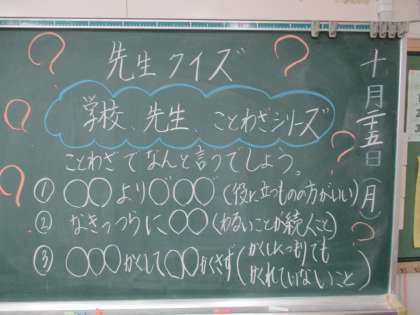 先生クイズ
学校、先生、ことわざシリーズ
ことわざでなんと言うでしょう。
① ○○より○゛○○(役に立つものの方がいい)
② なきっつらに○○(わるいことが続くこと)
③ ○○○かくして○○かくさず(かくしたつもりでもかくれていないこと)
十月二十五日(月)